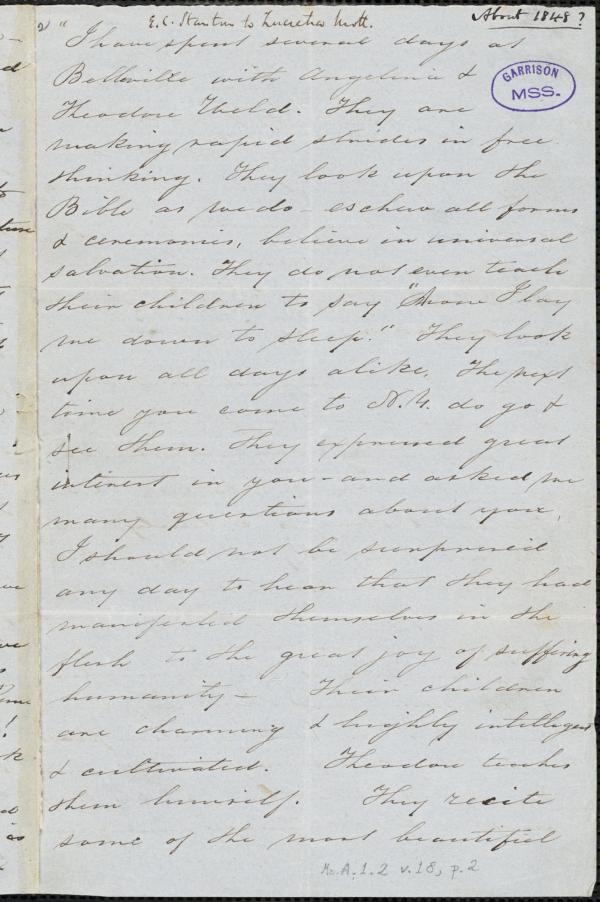 2
E. C. Stanton to Lucretia Mott.
About 1848?
GARRISON
MSS.
"I have spent several days at
Belleville with Angelina &
Theodore Weld. They are
making rapid strides in free
thinking. They look upon the
Bible as we do - eschew all forms
& ceremonies, believe in universal
salvation. They do not even teach
their children to say "Now I lay
me down to sleep." They look
upon all days alike. The next
time you come to N.Y. do go &
see them. They expressed great
interest in you - and asked me
many questions about you.
I should not be surprised
any day to hear that they had
manifested themselves in the
flesh to the great joy of suffering
humanity - Their children
are charming & highly intelligent
& cultivated. Theodore teaches
them himself. They recite
some of the most beautiful
Ms. A. 1. 2 v. 18, p. 2